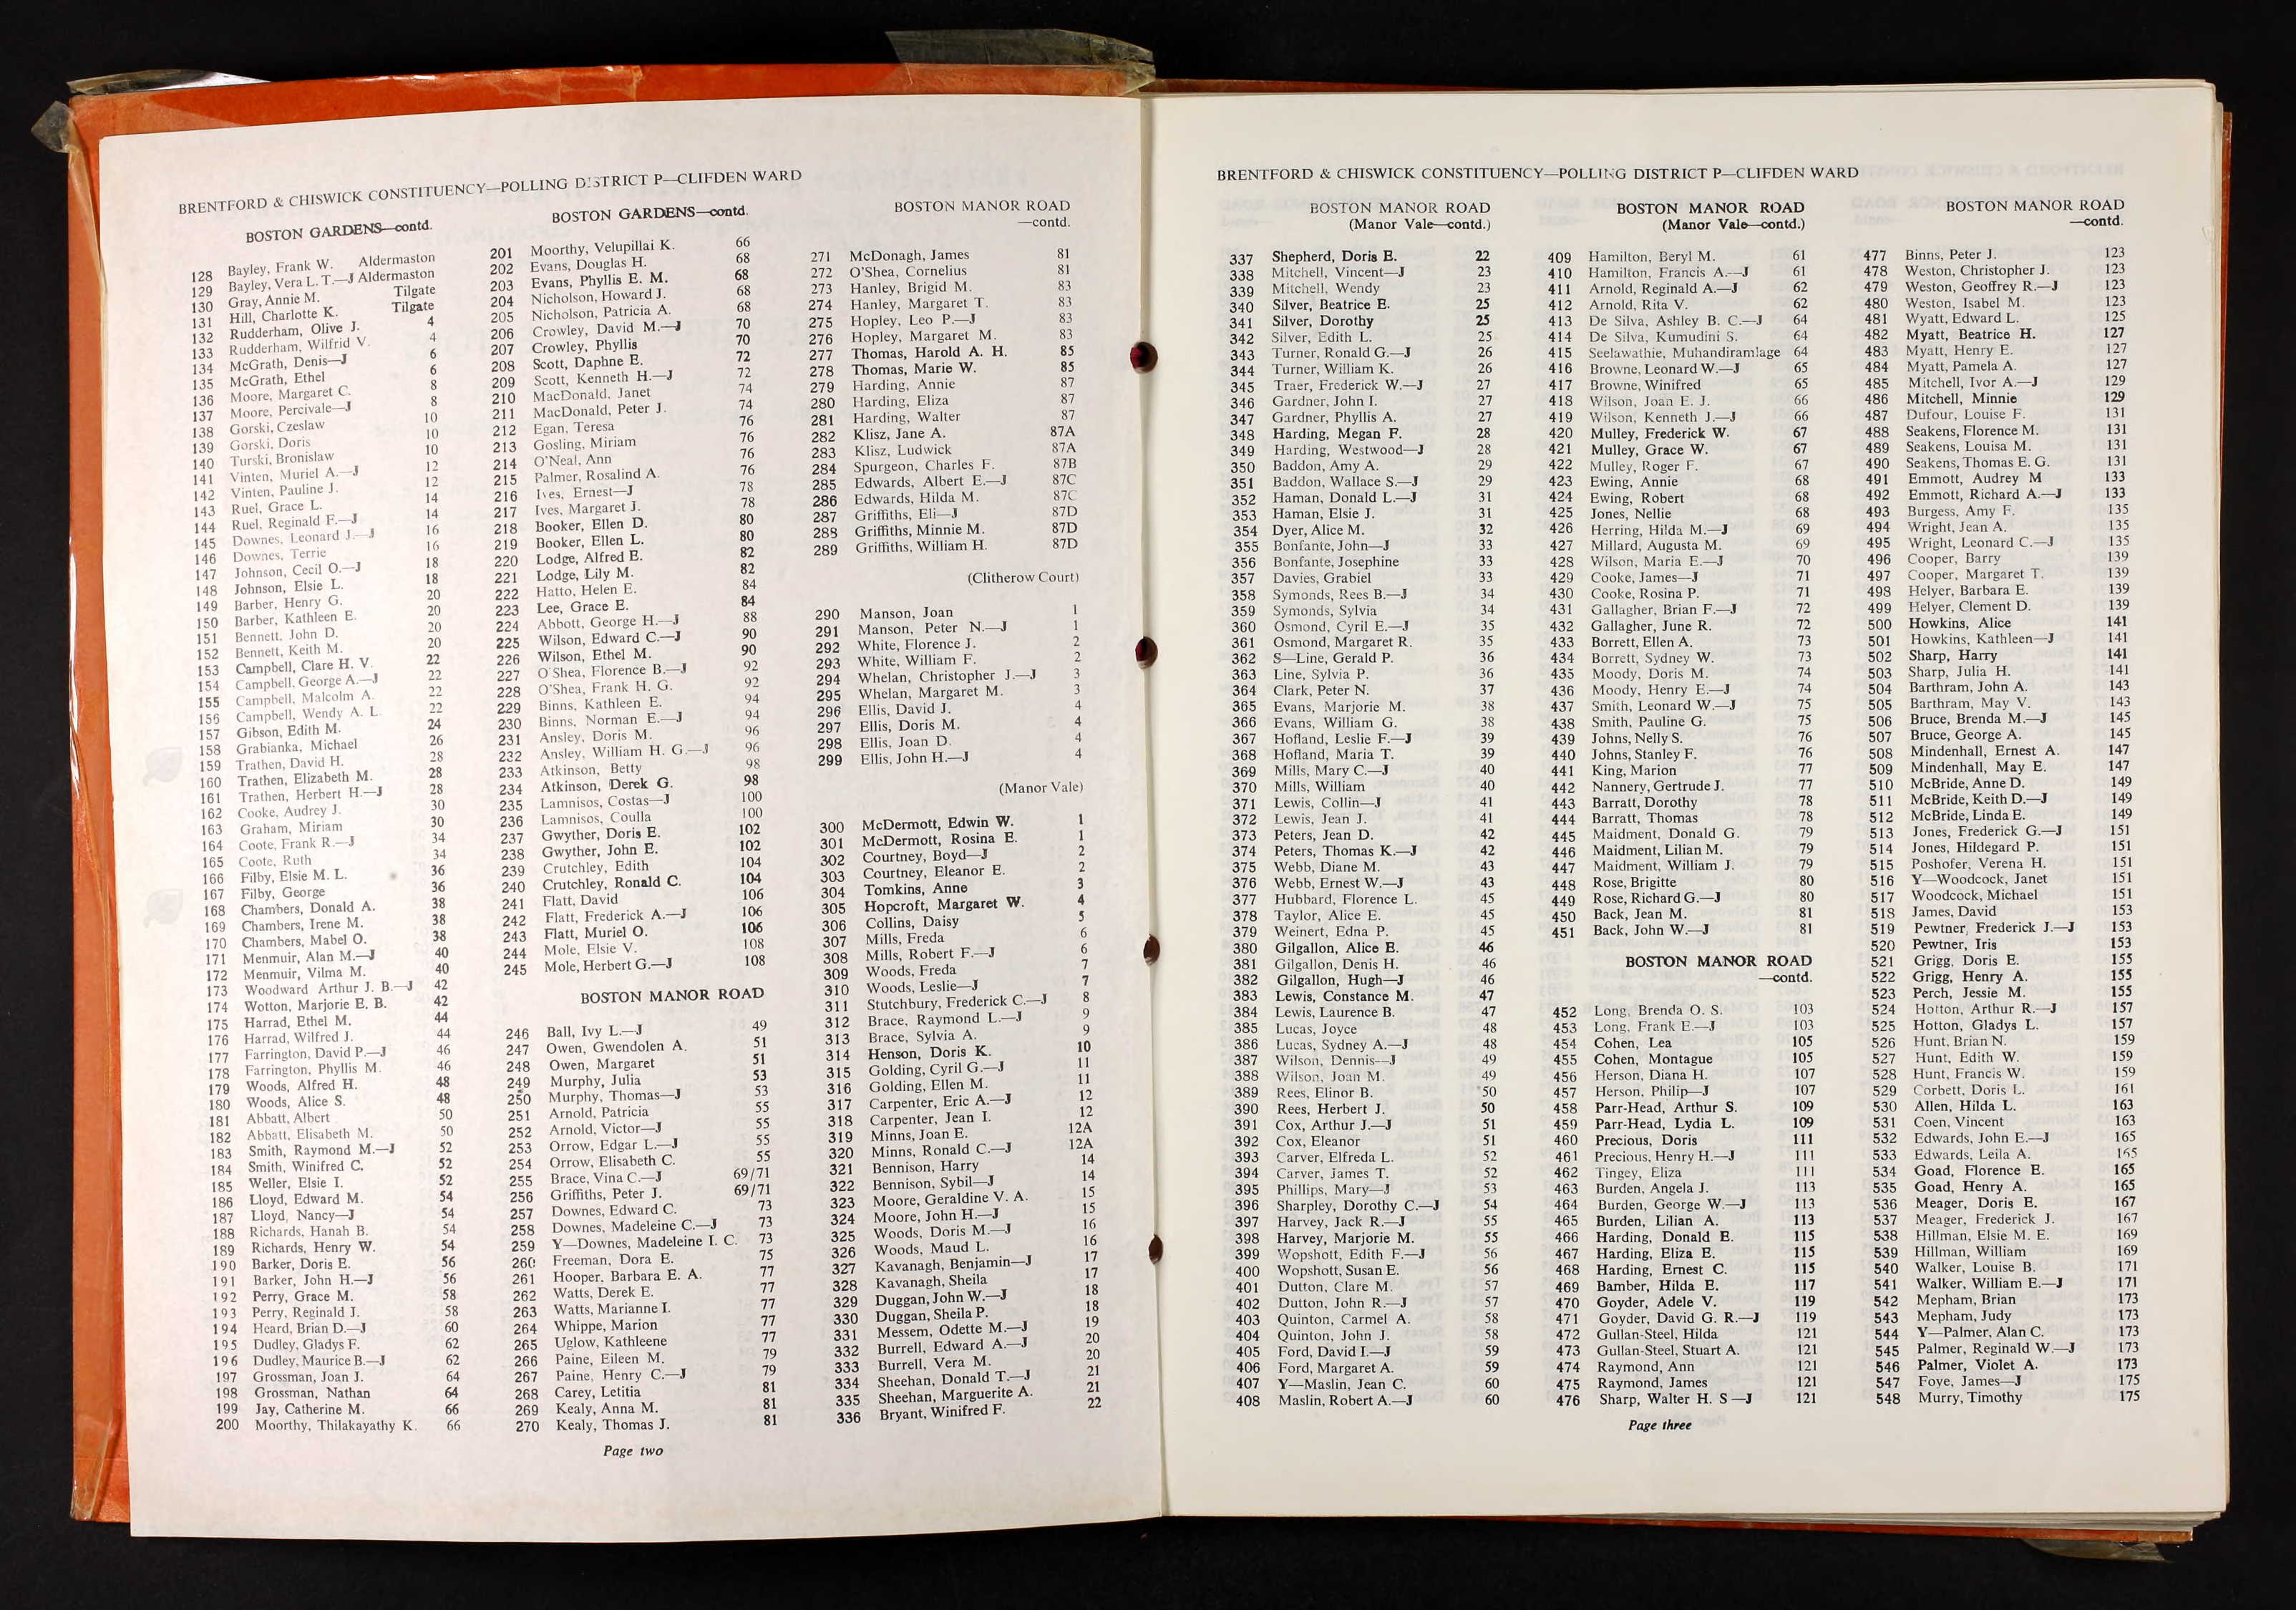 BRENTFORD & CHISWICK CONSTITUENCY—POLLING DISTRICT P—CLIFDEN WARD
BOSTON GARDENS—contd.
128 Bayley, Frank W. Aldermaston
129 Bayley, Vera L. T.—J Aldermaston
130 Gray, Annie M. Tilgate
131 Hill, Charlotte K. Tilgate
132 Rudderham, Olive J. 4
133 Rudderham, Wilfrid V. 4
134 McGrath, Denis—J 6
135 McGrath, Ethel 6
136 Moore, Margaret C. 8
137 Moore, Percivale—J 8
138 Gorski, Czeslaw 10
139 Gorski, Doris 10
140 Turski, Bronislaw 10
141 Vinten, Muriel A.—J 12
142 Vinten, Pauline J. 12
143 Ruel, Grace L. 14
144 Ruel, Reginald F.—J 14
145 Downes, Leonard J.—J 16
146 Downes, Terrie 16
147 Johnson, Cecil O.—J 18
148 Johnson, Elsie L. 18
149 Barber, Henry G. 20
150 Barber, Kathleen E. 20
151 Bennett, John D. 20
152 Bennett, Keith M. 20
153 Campbell, Clare H. V. 22
154 Campbell, George A.—J 22
155 Campbell, Malcolm A. 22
156 Campbell, Wendy A. L. 22
157 Gibson, Edith M. 24
158 Grabianka, Michael 26
159 Trathen, David H. 28
160 Trathen, Elizabeth M. 28
161 Trathen, Herbert H.—J 28
162 Cooke, Audrey J. 30
163 Graham, Miriam 30
164 Coote, Frank R.—J 34
165 Coote, Ruth 34
166 Filby, Elsie M. L. 36
167 Filby, George 36
168 Chambers, Donald A. 38
169 Chambers, Irene M. 38
170 Chambers, Mabel O. 38
171 Menmuir, Alan M.—J 40
172 Menmuir, Vilma M. 40
173 Woodward Arthur J. B.—J 42
174 Wotton, Marjorie E. B. 42
175 Harrad, Ethel M. 44
176 Harrad, Wilfred J. 44
177 Farrington, David P.—J 46
178 Farrington, Phyllis M. 46
179 Woods, Alfred H. 48
180 Woods, Alice S. 48
181 Abbatt, Albert 50
182 Abbatt, Elisabeth M. 50
183 Smith, Raymond M.—J 52
184 Smith, Winifred C. 52
185 Weller, Elsie I. 52
186 Lloyd, Edward M. 54
187 Lloyd, Nancy—J 54
188 Richards, Hanah B. 54
189 Richards, Henry W. 54
190 Barker, Doris E. 56
191 Barker, John H.—J 56
192 Perry, Grace M. 58
193 Perry, Reginald J. 58
194 Heard, Brian D.—J 60
195 Dudley, Gladys F. 62
196 Dudley, Maurice B.—J 62
197 Grossman, Joan J. 64
198 Grossman, Nathan 64
199 Jay, Catherine M. 66
200 Moorthy, Thilakayathy K. 66
BOSTON GARDENS—contd.
201 Moorthy, Velupillai K. 66
202 Evans, Douglas H. 68
203 Evans, Phyllis E. M. 68
204 Nicholson, Howard J. 68
205 Nicholson, Patricia A. 68
206 Crowley, David M.—J 70
207 Crowley, Phyllis 70
208 Scott, Daphne E. 72
209 Scott, Kenneth H.—J 72
210 MacDonald, Janet 74
211 MacDonald, Peter J. 74
212 Egan, Teresa 76
213 Gosling, Miriam 76
214 O'Neal, Ann 76
215 Palmer, Rosalind A. 76
216 Ives, Ernest—J 78
217 Ives, Margaret J. 78
218 Booker, Ellen D. 80
219 Booker, Ellen L. 80
220 Lodge, Alfred E. 82
221 Lodge, Lily M. 82
222 Hatto, Helen E. 84
223 Lee, Grace E. 84
224 Abbott, George H.—J 88
225 Wilson, Edward C.—J 90
226 Wilson, Ethel M. 90
227 O'Shea, Florence B.—J 92
228 O'Shea, Frank H. G. 92
229 Binns, Kathleen E. 94
230 Binns, Norman E.—J 94
231 Ansley, Doris M. 96
232 Ansley, William H. G.—J 96
233 Atkinson, Betty 98
234 Atkinson, Derek G. 98
235 Lamnisos, Costas—J 100
236 Lamnisos, Coulla 100
237 Gwyther, Doris E. 102
238 Gwyther, John E. 102
239 Crutchley, Edith 104
240 Crutchley, Ronald C. 104
241 Flatt, David 106
242 Flatt, Frederick A.—J 106
243 Flatt, Muriel O. 106
244 Mole, Elsie V. 108
245 Mole, Herbert G.—J 108
BOSTON MANOR ROAD
246 Ball, Ivy L.—J 49
247 Owen, Gwendolen A. 51
248 Owen, Margaret 51
249 Murphy, Julia 53
250 Murphy, Thomas—J 53
251 Arnold, Patricia 55
252 Arnold, Victor—J 55
253 Orrow, Edgar L.—J 55
254 Orrow, Elisabeth C. 55
255 Brace, Vina C.—J 69/71
256 Griffiths, Peter J. 69/71
257 Downes, Edward C. 73
258 Downes, Madeleine C.—J 73
259 Y—Downes, Madeleine I. C. 73
260 Freeman, Dora E. 75
261 Hooper, Barbara E. A. 77
262 Watts, Derek E. 77
263 Watts, Marianne I. 77
264 Whippe, Marion 77
265 Uglow, Kathleene 77
266 Paine, Eileen M. 79
267 Paine, Henry C.—J 79
268 Carey, Letitia 81
269 Kealy, Anna M. 81
270 Kealy, Thomas J. 81
BOSTON MANOR ROAD
—contd.
271 McDonagh, James 81
272 O'Shea, Cornelius 81
273 Hanley, Brigid M. 83
274 Hanley, Margaret T. 83
275 Hopley, Leo P.—J 83
276 Hopley, Margaret M. 83
277 Thomas, Harold A. H. 85
278 Thomas, Marie W. 85
279 Harding, Annie 87
280 Harding, Eliza 87
281 Harding, Walter 87
282 Klisz, Jane A. 87A
283 Klisz, Ludwick 87A
284 Spurgeon, Charles F. 87B
285 Edwards, Albert E.—J 87C
286 Edwards, Hilda M. 87C
287 Griffiths, Eli—J 87D
288 Griffiths, Minnie M. 87D
289 Griffiths, William H. 87D
(Clitherow Court)
290 Manson, Joan 1
291 Manson, Peter N.—J 1
292 White, Florence J. 2
293 White, William F. 2
294 Whelan, Christopher J.—J 3
295 Whelan, Margaret M. 3
296 Ellis, David J. 4
297 Ellis, Doris M. 4
298 Ellis, Joan D. 4
299 Ellis, John H.—J 4
(Manor Vale)
300 McDermott, Edwin W. 1
301 McDermott, Rosina E. 1
302 Courtney, Boyd—J 2
303 Courtney, Eleanor E. 2
304 Tomkins, Anne 3
305 Hopcroft, Margaret W. 4
306 Collins, Daisy 5
307 Mills, Freda 6
308 Mills, Robert F.—J 6
309 Woods, Freda 7
310 Woods, Leslie—J 7
311 Stutchbury, Frederick C.—J 8
312 Brace, Raymond L.—J 9
313 Brace, Sylvia A. 9
314 Henson, Doris K. 10
315 Golding, Cyril G.—J 11
316 Golding, Ellen M. 11
317 Carpenter, Eric A.—J 12
318 Carpenter, Jean I. 12
319 Minns, Joan E. 12A
320 Minns, Ronald C.—J 12A
321 Bennison, Harry 14
322 Bennison, Sybil—J 14
323 Moore, Geraldine V. A. 15
324 Moore, John H.—J 15
325 Woods, Doris M.—J 16
326 Woods, Maud L. 16
327 Kavanagh, Benjamin—J 17
328 Kavanagh, Sheila 17
329 Duggan, John W.—J 18
330 Duggan, Sheila P. 18
331 Messem, Odette M.—J 19
332 Burrell, Edward A.—J 20
333 Burrell, Vera M. 20
334 Sheehan, Donald T.—J 21
335 Sheehan, Marguerite A. 21
336 Bryant, Winifred F. 22
Page two
BRENTFORD & CHISWICK CONSTITUENCY—POLLING DISTRICT P—CLIFDEN WARD
BOSTON MANOR ROAD
(Manor Vale—contd.)
337 Shepherd, Doris E. 22
338 Mitchell, Vincent—J 23
339 Mitchell, Wendy 23
340 Silver, Beatrice E. 25
341 Silver, Dorothy 25
342 Silver, Edith L. 25
343 Turner, Ronald G.—J 26
344 Turner, William K. 26
345 Traer, Frederick W.—J 27
346 Gardner, John I. 27
347 Gardner, Phyllis A. 27
348 Harding, Megan F. 28
349 Harding, Westwood—J 28
350 Baddon, Amy A. 29
351 Baddon, Wallace S.—J 29
352 Haman, Donald L.—J 31
353 Haman, Elsie J. 31
354 Dyer, Alice M. 32
355 Bonfante, John—J 33
356 Bonfante, Josephine 33
357 Davies, Grabiel 33
358 Symonds, Rees B.—J 34
359 Symonds, Sylvia 34
360 Osmond, Cyril E.—J 35
361 Osmond, Margaret R. 35
362 S—Line, Gerald P. 36
363 Line, Sylvia P. 36
364 Clark, Peter N. 37
365 Evans, Marjorie M. 38
366 Evans, William G. 38
367 Hofland, Leslie F.—J 39
368 Hofland, Maria T. 39
369 Mills, Mary C.—J 40
370 Mills, William 40
371 Lewis, Collin—J 41
372 Lewis, Jean J. 41
373 Peters, Jean D. 42
374 Peters, Thomas K.—J 42
375 Webb, Diane M. 43
376 Webb, Ernest W.—J 43
377 Hubbard, Florence L. 45
378 Taylor, Alice E. 45
379 Weinert, Edna P. 45
380 Gilgallon, Alice B. 46
381 Gilgallon, Denis H. 46
382 Gilgallon, Hugh—J 46
383 Lewis, Constance M. 47
384 Lewis, Laurence B. 47
385 Lucas, Joyce 48
386 Lucas, Sydney A.—J 48
387 Wilson, Dennis—J 49
388 Wilson, Joan M. 49
389 Rees, Elinor B. 50
390 Rees, Herbert J. 50
391 Cox, Arthur J.—J 51
392 Cox, Eleanor 51
393 Carver, Elfreda L. 52
394 Carver, James T. 52
395 Phillips, Mary—J 53
396 Sharpley, Dorothy C.—J 54
397 Harvey, Jack R.—J 55
398 Harvey, Marjorie M. 55
399 Wopshott, Edith F.—J 56
400 Wopshott, Susan E. 56
401 Dutton, Clare M. 57
402 Dutton, John R.—J 57
403 Quinton, Carmel A. 58
404 Quinton, John J. 58
405 Ford, David I.—J 59
406 Ford, Margaret A. 59
407 Y—Maslin, Jean C. 60
408 Maslin, Robert A.—J 60
BOSTON MANOR ROAD
(Manor Vale—contd.)
409 Hamilton, Beryl M. 61
410 Hamilton, Francis A.—J 61
411 Arnold, Reginald A.—J 62
412 Arnold, Rita V. 62
413 De Silva, Ashley B. C.—J 64
414 De Silva, Kumudini S. 64
415 Seelawathie, Muhandiramlage 64
416 Browne, Leonard W.—J 65
417 Browne, Winifred 65
418 Wilson, Joan E. J. 66
419 Wilson, Kenneth J.—J 66
420 Mulley, Frederick W. 67
421 Mulley, Grace W. 67
422 Mulley, Roger F. 67
423 Ewing, Annie 68
424 Ewing, Robert 68
425 Jones, Nellie 68
426 Herring, Hilda M.—J 69
427 Millard, Augusta M. 69
428 Wilson, Maria E.—J 70
429 Cooke, James—J 71
430 Cooke, Rosina P. 71
431 Gallagher, Brian F.—J 72
432 Gallagher, June R. 72
433 Borrett, Ellen A. 73
434 Borrett, Sydney W. 73
435 Moody, Doris M. 74
436 Moody, Henry E.—J 74
437 Smith, Leonard W.—J 75
438 Smith, Pauline G. 75
439 Johns, Nelly S. 76
440 Johns, Stanley F. 76
441 King, Marion 77
442 Nannery, Gertrude J. 77
443 Barratt, Dorothy 78
444 Barratt, Thomas 78
445 Maidment, Donald G. 79
446 Maidment, Lilian M. 79
447 Maidment, William J. 79
448 Rose, Brigitte 80
449 Rose, Richard G.—J 80
450 Back, Jean M. 81
451 Back, John W.—J 81
BOSTON MANOR ROAD
—contd.
452 Long, Brenda O. S. 103
453 Long, Frank E.—J 103
454 Cohen, Lea 105
455 Cohen, Montague 105
456 Herson, Diana H. 107
457 Herson, Philip—J 107
458 Parr-Head, Arthur S. 109
459 Parr-Head, Lydia L. 109
460 Precious, Doris 111
461 Precious, Henry H.—J 111
462 Tingey, Eliza 111
463 Burden, Angela J. 113
464 Burden, George W.—J 113
465 Burden, Lilian A. 113
466 Harding, Donald E. 115
467 Harding, Eliza E. 115
468 Harding, Ernest C. 115
469 Bamber, Hilda E. 117
470 Goyder, Adele V. 119
471 Goyder, David G. R.—J 119
472 Gullan-Steel, Hilda 121
473 Gullan-Steel, Stuart A. 121
474 Raymond, Ann 121
475 Raymond, James 121
476 Sharp, Walter H. S—J 121
BOSTON MANOR ROAD
—contd.
477 Binns, Peter J. 123
478 Weston, Christopher J. 123
479 Weston, Geoffrey R.—J 123
480 Weston, Isabel M. 123
481 Wyatt, Edward L. 125
482 Myatt, Beatrice H. 127
483 Myatt, Henry E. 127
484 Myatt, Pamela A. 127
485 Mitchell, Ivor A.—J 129
486 Mitchell, Minnie 129
487 Dufour, Louise F. 131
488 Seakens, Florence M. 131
489 Seakens, Louisa M. 131
490 Seakens, Thomas E. G. 131
491 Emmott, Audrey M 133
492 Emmott, Richard A.—J 133
493 Burgess, Amy F. 135
494 Wright, Jean A. 135
495 Wright, Leonard C.—J 135
496 Cooper, Barry 139
497 Cooper, Margaret T. 139
498 Helyer, Barbara E. 139
499 Helyer, Clement D. 139
500 Howkins, Alice 141
501 Howkins, Kathleen—J 141
502 Sharp, Harry 141
503 Sharp, Julia H. 141
504 Barthram, John A. 143
505 Barthram, May V. 143
506 Bruce, Brenda M.—J 145
507 Bruce, George A. 145
508 Mindenhall, Ernest A. 147
509 Mindenhall, May E. 147
510 McBride, Anne D. 149
511 McBride, Keith D.—J 149
512 McBride, Linda E. 149
513 Jones, Frederick G.—J 151
514 Jones, Hildegard P. 151
515 Poshofer, Verena H. 151
516 Y—Woodcock, Janet 151
517 Woodcock, Michael 151
518 James, David 153
519 Pewtner, Frederick J.—J 153
520 Pewtner, Iris 153
521 Grigg, Doris E. 155
522 Grigg, Henry A. 155
523 Perch, Jessie M. 155
524 Hotton, Arthur R.—J 157
525 Hotton, Gladys L. 157
526 Hunt, Brian N. 159
527 Hunt, Edith W. 159
528 Hunt, Francis W. 159
529 Corbett, Doris L. 161
530 Allen, Hilda L. 163
531 Coen, Vincent 163
532 Edwards, John E.—J 165
533 Edwards, Leila A. 165
534 Goad, Florence E. 165
535 Goad, Henry A. 165
536 Meager, Doris E. 167
537 Meager, Frederick J. 167
538 Hillman, Elsie M. E. 169
539 Hillman, William 169
540 Walker, Louise B. 171
541 Walker, William E.—J 171
542 Mepham, Brian 173
543 Mepham, Judy 173
544 Y—Palmer, Alan C. 173
545 Palmer, Reginald W.—J 173
546 Palmer, Violet A. 173
547 Foye, James—J 175
548 Murry, Timothy 175
Page three